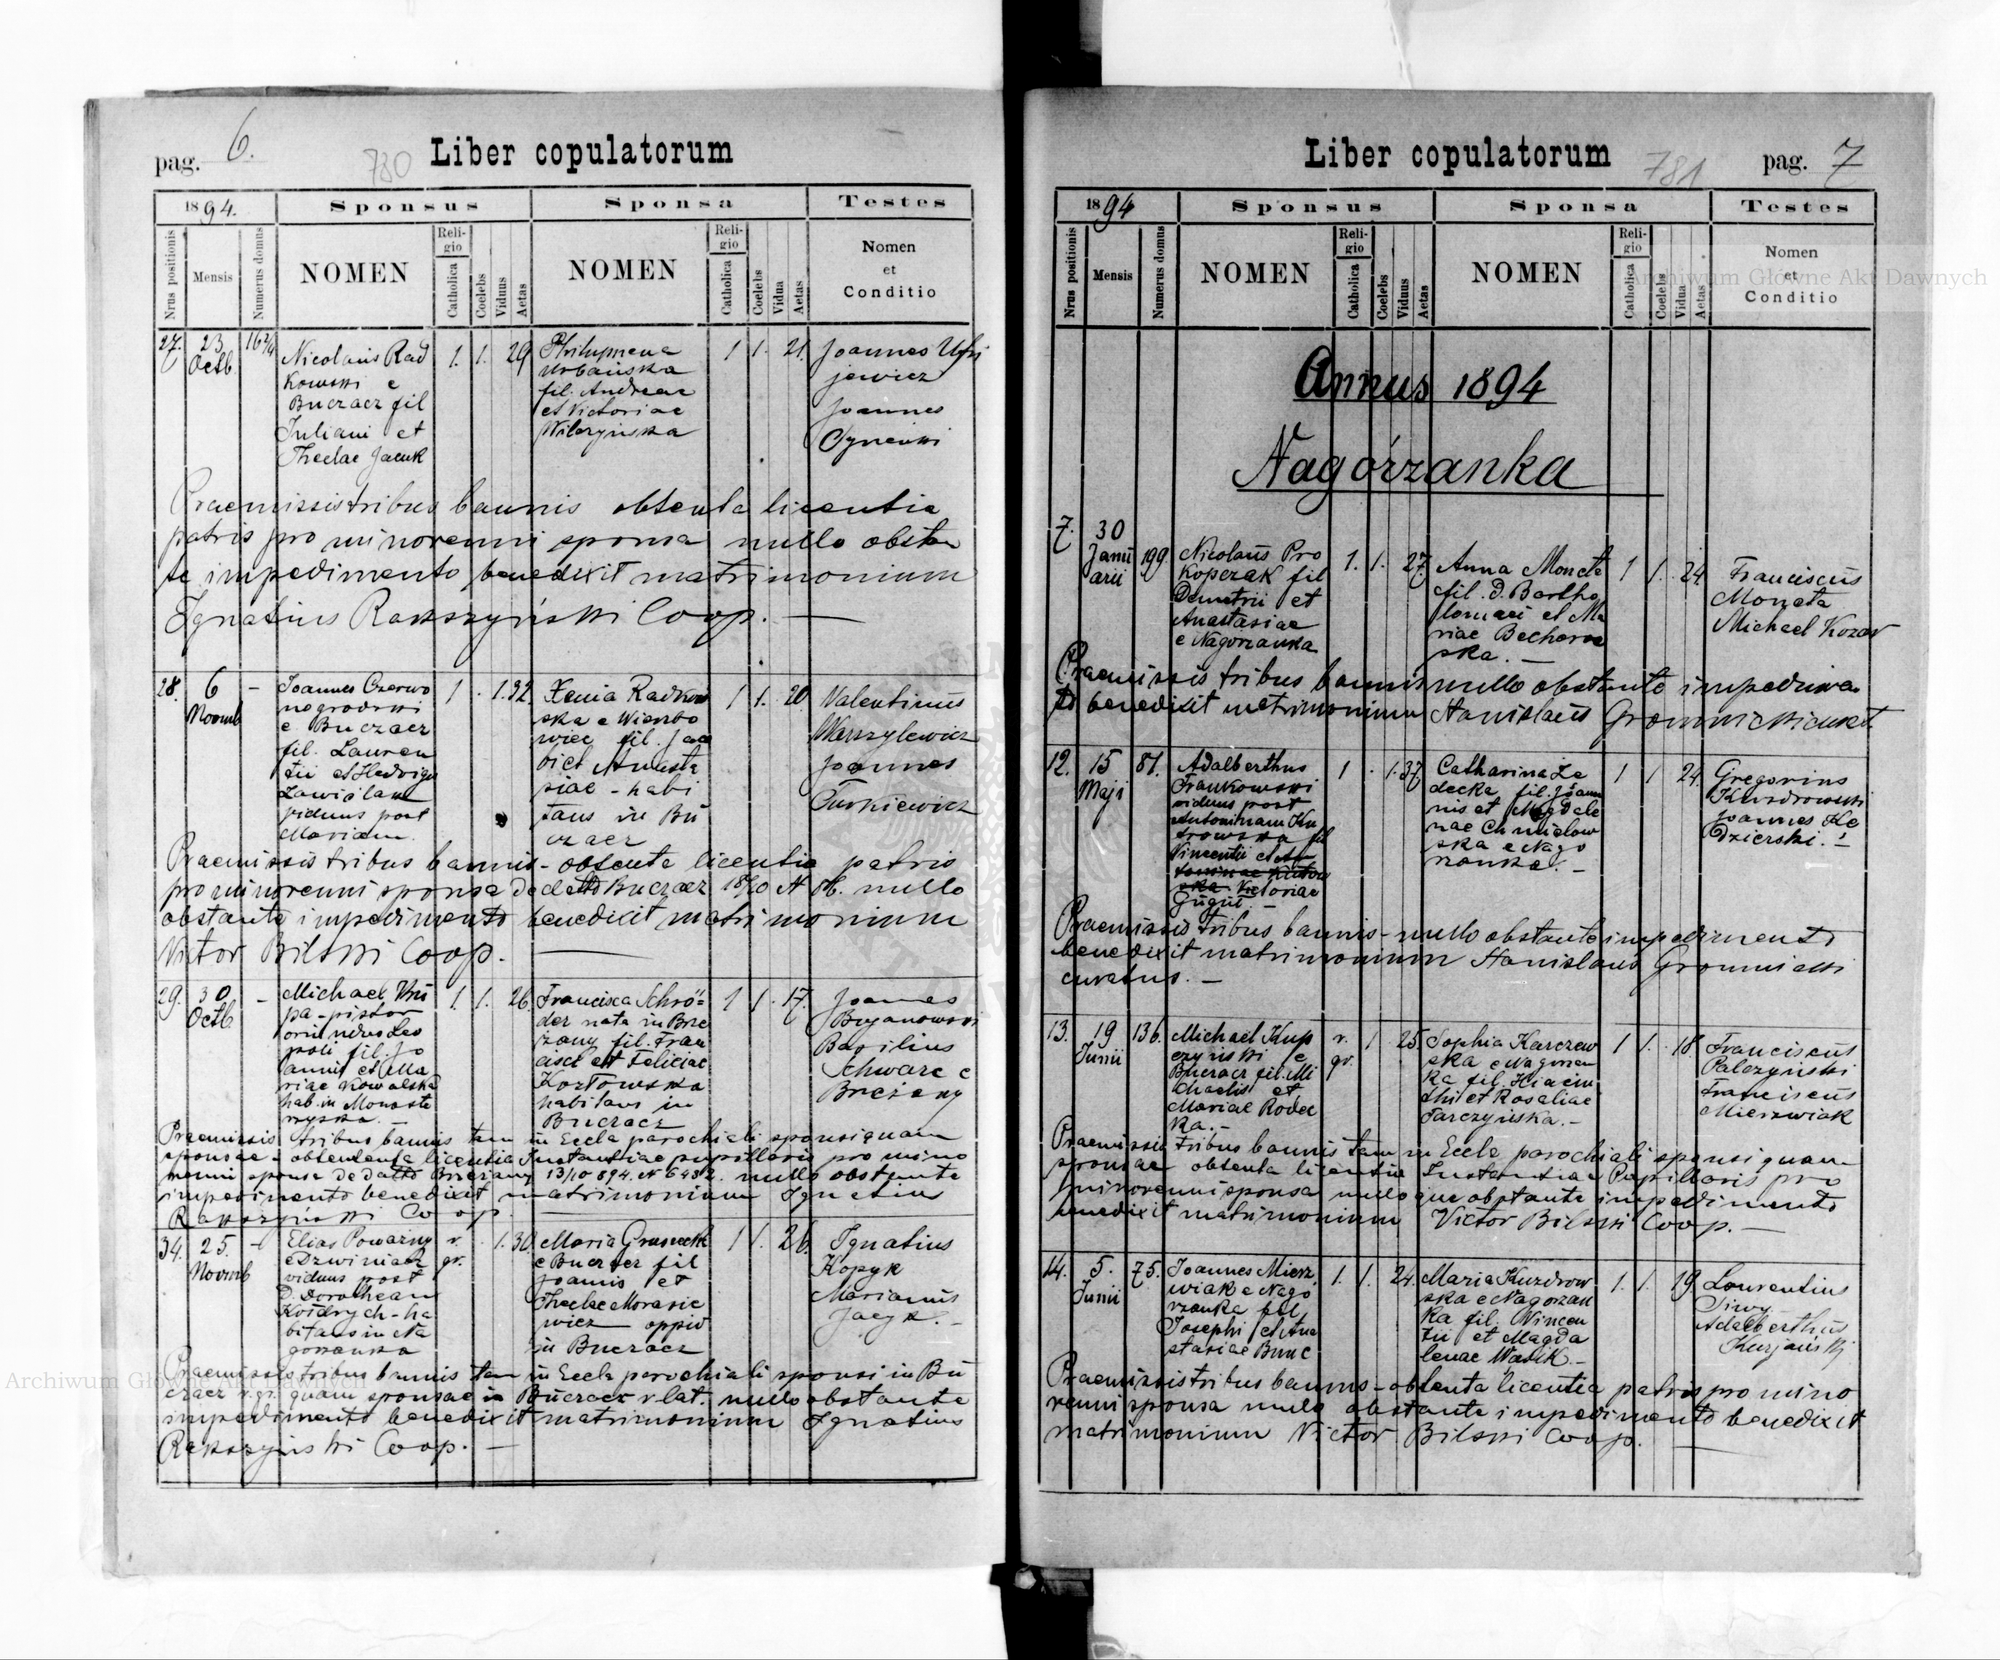 pag. 6.
730
Liber copulatorum
1894.
Sponsus
Sponsa
Testes
Nrus positionis
Mensis
Numerus domus
NOMEN
Religio
Catholica
Coelebs
Viduus
Aetas
NOMEN
Religio
Catholica
Coelebs
Vidua
Aetas
Nomen
et
Conditio
27. 23 Octb.
Nicolaus Rad
kowski e
Buczacz fil
Juliani et
Theclae
1. 1. 29
Philumena
Urbańska
fil. Andreae
et Victoriae
Wilczyńska
1 1. 21.
Joannes
jewicz
Joannes
Praemissis tribus bannis obtenta licentia
patris pro minorenni sponsa nullo obstan
te impedimento benedixit matrimonium
Ignatius Rakszyński Coop. —
28. 6 Novmb —
Joannes Czerwo
nogrodzki
e Buczacz
fil. Lauren
tii et Hedvigis
viduus post
Mariam.
1 . 1. 32.
Xenia Radkow
ska e Wierzbo
wiec fil. Jac
obi et Anasta
siae - habi
tans in Bu
czacz
1 1. 20.
Valentinus
Warszylewicz
Joannes
Turkiewicz
Praemissis tribus bannis - obtenta licentia patris
pro minorenni sponsa de datto Buczacz nullo
obstante impedimento benedixit matrimonium
Victor Bilski Coop. —
29. 30 Octb —
Michael
pa - pistor
oriundus Leo
poli fil. Jo
annis et Ma
riae Kowalska
hab. in Monaste
rzyska. —
1. 1. 26.
Francisca Schrö=
der nata in Brze
żany fil. Fran
cisci et Feliciae
Kozłowska
habitans in
Buczacz
1 1. 17.
Joannes
Bojanowski
Basilius
Schwarc e
Brzeżany
Praemissis tribus bannis tam in Eccla parochiali sponsi quam
sponsae - obtenta licentia Instantiae pupillaris pro mino
renni sponsa de datto Brzeżany 13/10 894 N 6432. nullo obstante
impedimento benedixit matrimonium Ignatius
Rakszyński Coop. —
34. 25. Novmb —
Elias Powaźny
e Dzwiniacz
viduus post
D. Dorotheam
Kosdrych - ha
bitans in Na
gorzanka
r. gr. . 1. 30.
Maria
e Buczacz fil
Joannis et
Theclae Morawie
wicz oppid
in Buczacz
1 1. 26.
Ignatius
Kopyk
Marianus
Jacyk. —
Praemissis tribus bannis tam in Eccla parochiali sponsi in Bu
czacz r. gr. quam sponsae in Buczacz r. lat. nullo obstante
impedimento benedixit matrimonium Ignatius
Rakszyński Coop. —
Liber copulatorum
781
pag. 7
1894
Sponsus
Sponsa
Testes
Nrus positionis
Mensis
Numerus domus
NOMEN
Religio
Catholica
Coelebs
Viduus
Aetas
NOMEN
Religio
Catholica
Coelebs
Vidua
Aetas
Nomen
et
Conditio
Annus 1894
Nagórzanka
7. 30 Januarii 199
Nicolaus Pro
kopczak fil
Demetrii et
Anastasiae
e Nagorzanka
1. 1. 27
Anna Moneta
fil. D. Bartho
lomaei et Ma
riae Bechorow
ska. —
1 1. 24.
Franciscus
Moneta
Michael Kozar
Praemissis tribus bannis nullo obstante impedimen
to benedixit matrimonium Stanislaus Gromnicki curat.
12. 15 Maji 81.
Adalberthus
Frankowski
viduus post
Antoninam Ku
trowska fil
Vincentii et An
Victoriae
1 . 1. 37.
Catharina Ze
lecka fil. Joan
nis et Magdale
nae Chmielow
ska e Nago
rzanka. —
1 1 24.
Gregorius
Kuzdrowski
Joannes Ke
dzierski. —
Praemissis tribus bannis - nullo obstante impedimento
benedixit matrimonium Stanislaus Gromnicki
curatus. —
13. 19 Junii 136.
Michael Kup
czyński e
Buczacz fil. Mi
chaelis et
Mariae Rodec
ka. —
r. gr. 1 25.
Sophia Karczew
ska e Nagorzan
ka fil. Hiacin
thi et Rosaliae
Tarczyńska. —
1 1. 18.
Franciscus
Palczyński
Franciscus
Mierzwiak
Praemissis tribus bannis tam in Eccla parochiali sponsi quam
sponsae obtenta licentia Instantiae Pupillaris pro
minorenni sponsa nulloque obstante impedimento
benedixit matrimonium Victor Bilski Coop. —
14. 5. Junii 75.
Joannes Mierz
wiak e Nago
rzanka fil.
Josephi et Ana
stasiae Bunc
1. 1. 24.
Maria Kuzdrow
ska e Nagorzan
ka fil. Vincen
tii et Magda
lenae Wasik. —
1. 1. 19
Laurentius
Siwy
Adalberthus
Kurjański
Praemissis tribus bannis - obtenta licentia patris pro mino
renni sponsa nullo obstante impedimento benedixit
matrimonium Victor Bilski Coop. —
Archiwum Główne Akt Dawnych
Archiwum Główne Akt Dawnych